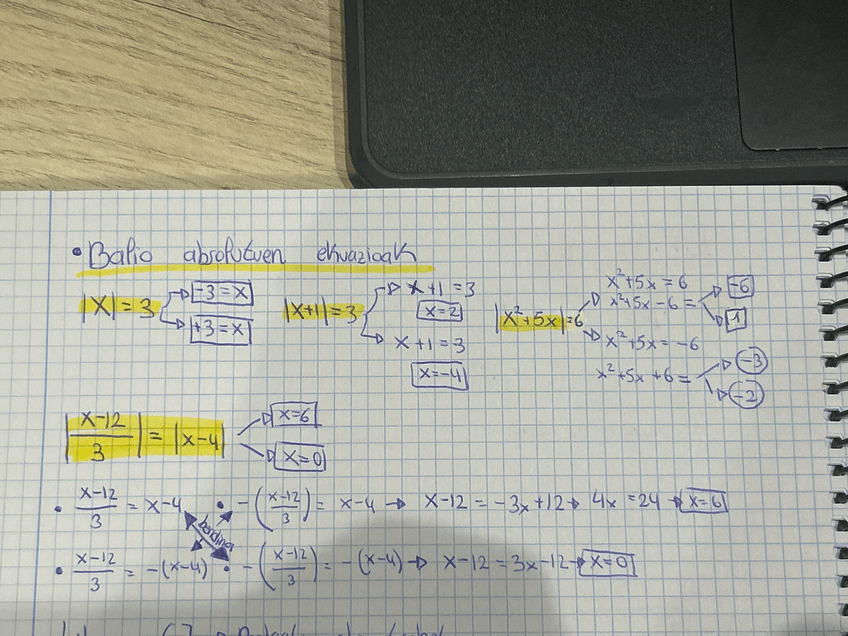 • Balio absolutuen ekuazioak
|x| = 3 → -3 = x
→ +3 = x
|x+1| = 3 → x+1 = 3
x = 2
→ x+1 = 3
x = -4
|x²+5x| = 6 → x²+5x = 6
x²+5x-6 = → -6
→ 1
→ x²+5x = -6
x²+5x+6 = → -3
→ -2
|(x-12)/3| = |x-4| → x=6
→ x=0
• (x-12)/3 = x-4 • -((x-12)/3) = x-4 → x-12 = -3x+12 → 4x = 24 → x=6
berdina
• (x-12)/3 = -(x-4) • -((x-12)/3) = -(x-4) → x-12 = 3x-12 → x=0